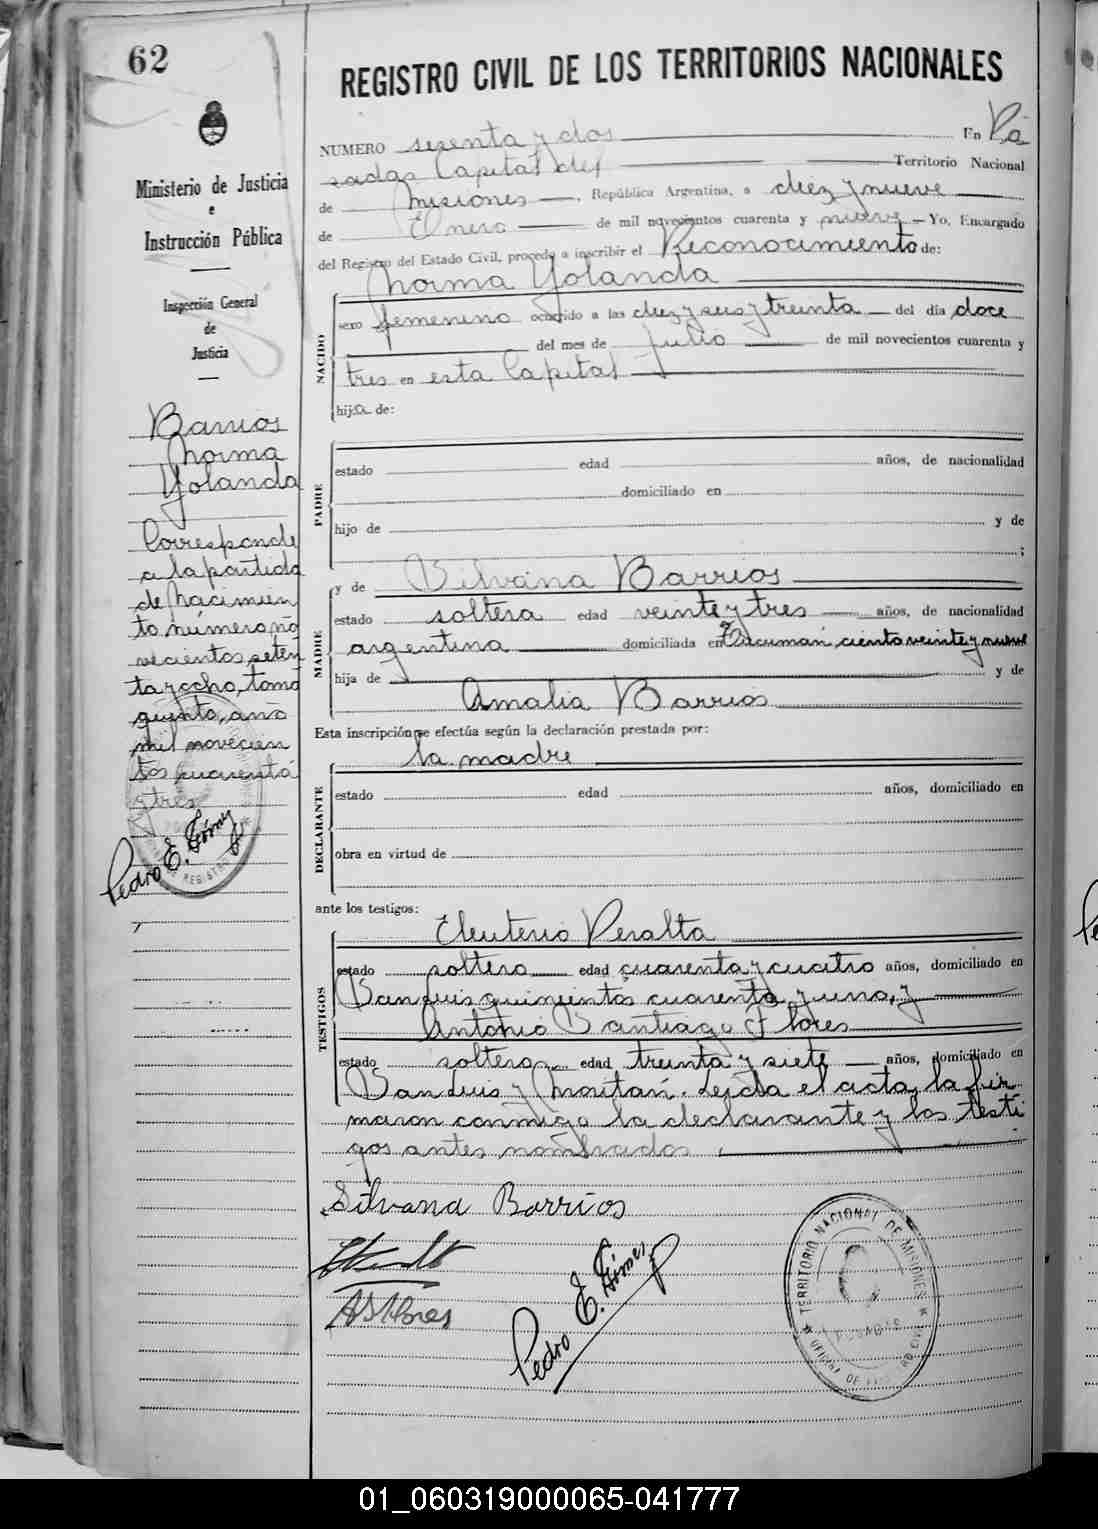 62
REGISTRO CIVIL DE LOS TERRITORIOS NACIONALES
Ministerio de Justicia
e
Instrucción Pública
Inspección General
de
Justicia
Barrios
Norma
Yolanda
Corresponde
a la partida
de Nacimien
to número no
vecientos seten
ta y ocho, tomo
quinto, año
mil novecien
tos cuarenta
y tres
Pedro E. Gómez
NUMERO sesenta y dos En Po
sadas Capital del Territorio Nacional
de Misiones, República Argentina, a diez y nueve
de Enero de mil novecientos cuarenta y nueve Yo, Encargado
del Registro del Estado Civil, procedo a inscribir el Reconocimiento de:
Norma Yolanda
NACIDO
sexo femenino ocurrido a las diez y seis y treinta del día doce
del mes de julio de mil novecientos cuarenta y
tres en esta Capital
hija de:
PADRE
estado edad años, de nacionalidad
domiciliado en
hijo de y de
;
y de Silvana Barrios
MADRE
estado soltera edad veinte y tres años, de nacionalidad
argentina domiciliada en Tucumán ciento veinte y nueve
hija de y de
Amalia Barrios
Esta inscripción se efectúa según la declaración prestada por:
la madre
DECLARANTE
estado edad años, domiciliado en
obra en virtud de
ante los testigos:
Eleuterio Peralta
TESTIGOS
estado soltero edad cuarenta y cuatro años, domiciliado en
San Luis quinientos cuarenta y uno, y
Antonio Santiago Flores
estado soltero edad treinta y siete años, domiciliado en
San Luis y Moritán. Leída el acta, la fir
maron conmigo la declarante y los testi
gos antes nombrados
Silvana Barrios
A S Flores
Pedro E. Gómez
TERRITORIO NACIONAL DE MISIONES
POSADAS
OFICINA DE REGISTRO CIVIL
01_060319000065-041777